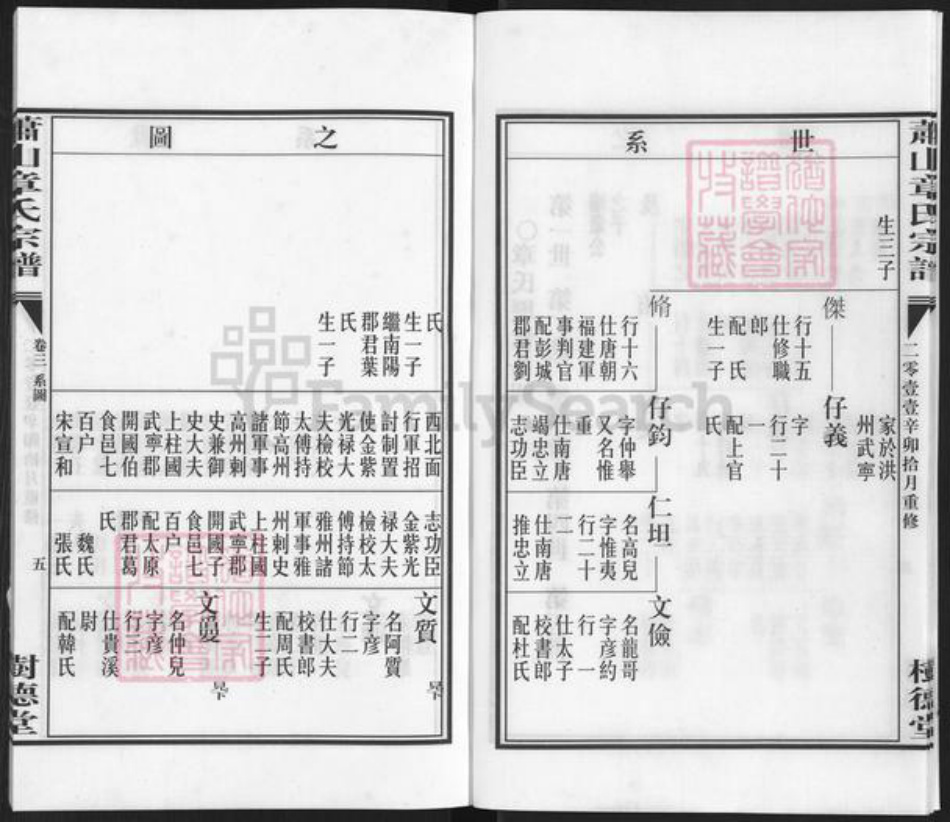 世
系
蕭山章氏宗譜
二零壹壹辛卯拾月重修
樹德堂
生三子
家於洪
州武寧
傑
仔義
行十五
仕修職
郎
配 氏
生一子
字
行二十
一
配上官
氏
脩
仔鈞
仁坦
文儉
行十六
仕唐朝
福建軍
事判官
配彭城
郡君劉
字仲舉
又名惟
重
仕南唐
竭忠立
志功臣
名高兒
字惟夷
行二十
仕南唐
推忠立
名龍哥
字彥約
行一
仕太子
校書郎
配杜氏
之
圖
氏
生一子
繼南陽
郡君葉
氏
生一子
西北面
行軍招
討制置
使金紫
光祿大
夫檢校
太傅持
節高州
諸軍事
高州刺
史兼御
史大夫
上柱國
武寧郡
開國伯
食邑七
百户
宋宣和
志功臣
金紫光
祿大夫
檢校太
傅持節
雅州諸
軍事雅
州刺史
上柱國
武寧郡
開國子
食邑七
百户
配太原
郡君葛
氏
魏氏
張氏
文質
名阿質
字彥
行二
仕大夫
校書郎
配周氏
生二子
文夐
名仲兒
字彥
行三
仕貴溪
尉
配韓氏
蕭山章氏宗譜
卷三 系圖
五
樹德堂
FamilySearch